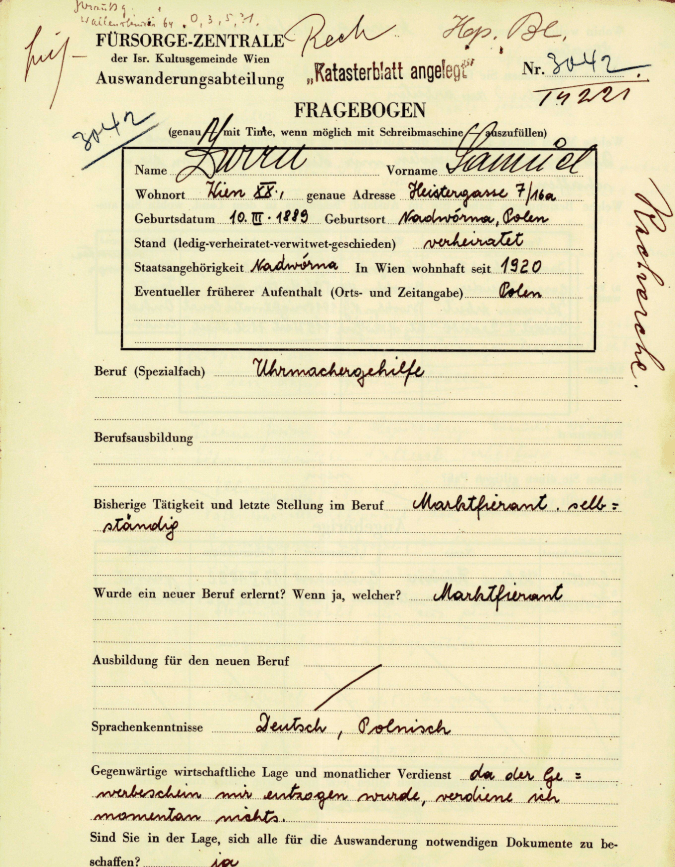 0, 3, 5, 31.
FÜRSORGE-ZENTRALE
der Isr. Kultusgemeinde Wien
Auswanderungsabteilung
Rech
„Katasterblatt angelegt"
Nr. 3042
19221
3042
FRAGEBOGEN
(genau mit Tinte, wenn möglich mit Schreibmaschine auszufüllen)
Name Vorname Samuel
Wohnort Wien XX., genaue Adresse Heistergasse 7/16a
Geburtsdatum 10. III. 1889 Geburtsort Nadwórna, Polen
Stand (ledig-verheiratet-verwitwet-geschieden) verheiratet
Staatsangehörigkeit Nadwórna In Wien wohnhaft seit 1920
Eventueller früherer Aufenthalt (Orts- und Zeitangabe) Polen
Recherche.
Beruf (Spezialfach) Uhrmachergehilfe
Berufsausbildung
Bisherige Tätigkeit und letzte Stellung im Beruf Marktfierant. selb=
ständig
Wurde ein neuer Beruf erlernt? Wenn ja, welcher? Marktfierant
Ausbildung für den neuen Beruf
Sprachenkenntnisse Deutsch, Polnisch
Gegenwärtige wirtschaftliche Lage und monatlicher Verdienst da der Ge=
werbeschein mir entzogen wurde, verdiene ich
momentan nichts.
Sind Sie in der Lage, sich alle für die Auswanderung notwendigen Dokumente zu be-
schaffen? ja